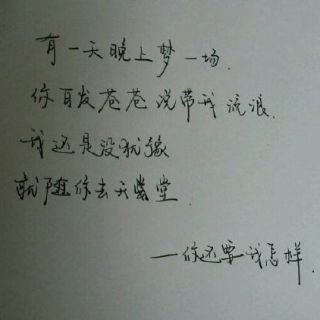 有一天晚上梦一场.
你白发苍苍说带我流浪.
我还是没犹豫
就随你去天堂.
—你还要我怎样.